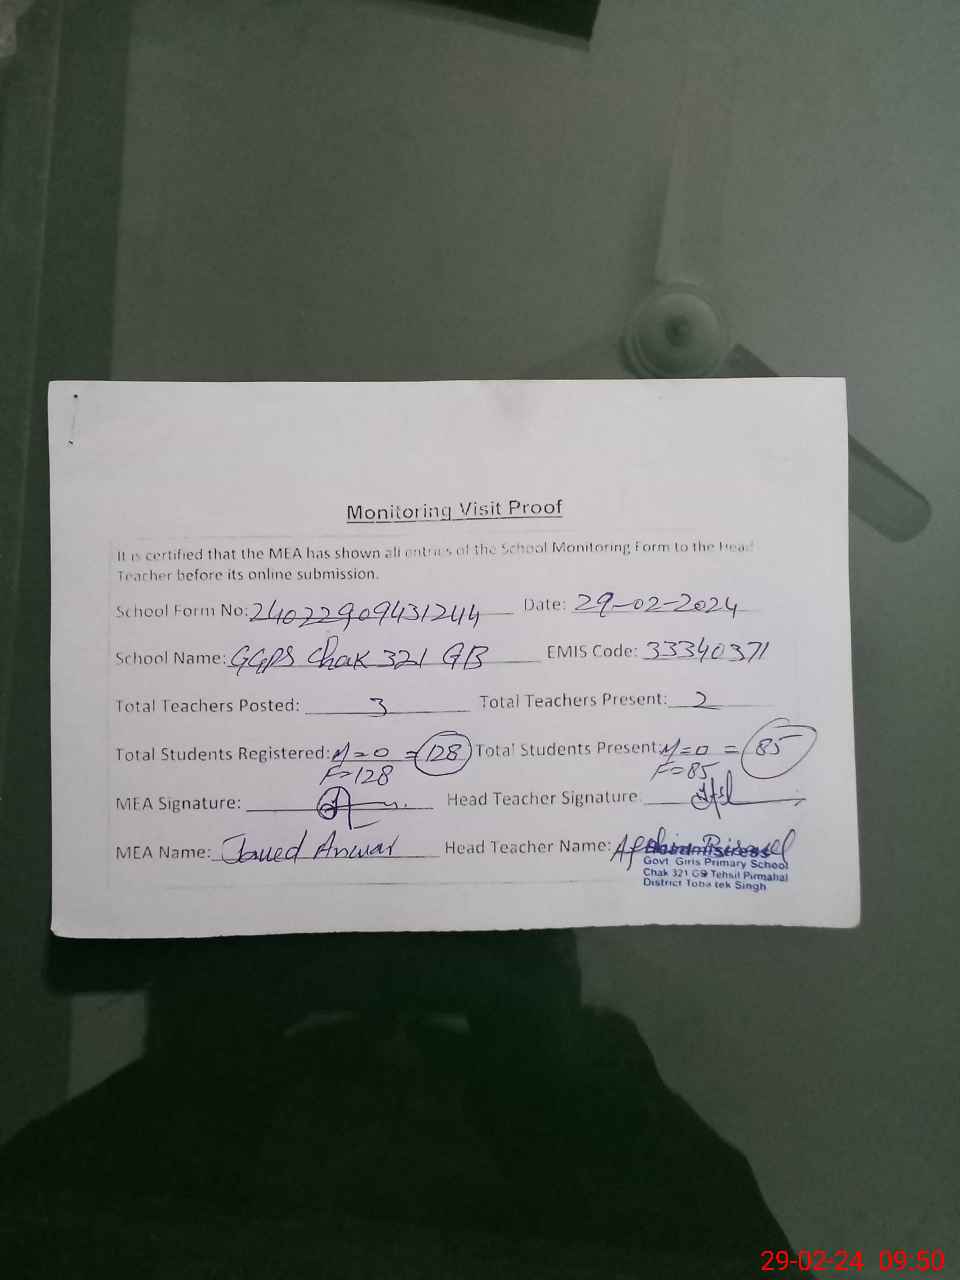 Monitoring Visit Proof
It is certified that the MEA has shown all entries of the School Monitoring Form to the Head
Teacher before its online submission.
School Form No: 24022909431244 Date: 29-02-2024
School Name: GGPS Chak 321 GB EMIS Code: 33340371
Total Teachers Posted: 3 Total Teachers Present: 2
Total Students Registered: M=0 = 128 Total Students Present: M=0 = 85
F=128 F=85
MEA Signature: Head Teacher Signature:
MEA Name: Javed Anwar Head Teacher Name:
Headmistress
Govt Girls Primary School
Chak 321 GB Tehsil Pirmahal
District Toba tek Singh
29-02-24 09:50